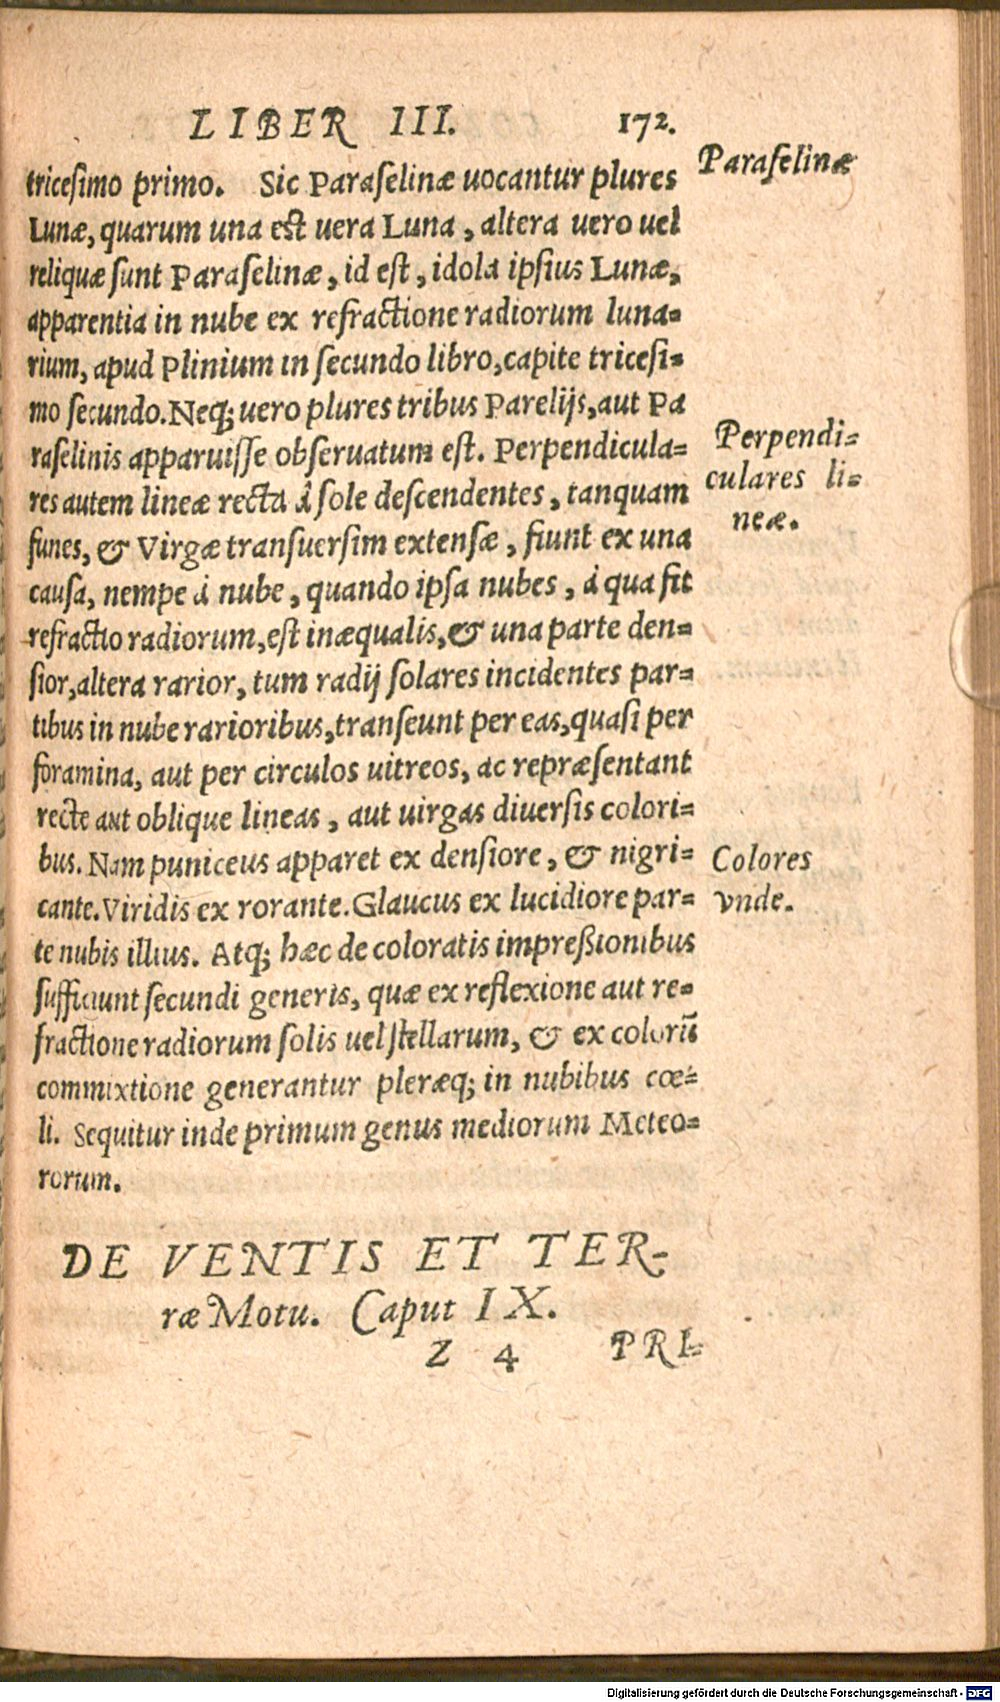 LIBER III. 172.
tricesimo primo. Sic Paraſelinæ uocantur plures
Lunæ, quarum una eſt uera Luna, altera uero uel
reliquæ ſunt Paraſelinæ, id eſt, idola ipſius Lunæ,
apparentia in nube ex refractione radiorum luna-
rium, apud Plinium in ſecundo libro, capite triceſi-
mo ſecundo. Neq; uero plures tribus Parelijs, aut Pa
raſelinis apparuiſſe obſeruatum eſt. Perpendicula-
res autem lineæ recta à ſole deſcendentes, tanquam
funes, & Virgæ tranſuerſim extenſæ, fiunt ex una
cauſa, nempe à nube, quando ipſa nubes, à qua fit
refractio radiorum, eſt inæqualis, & una parte den-
ſior, altera rarior, tum radij ſolares incidentes par-
tibus in nube rarioribus, tranſeunt per eas, quaſi per
foramina, aut per circulos uitreos, ac repræſentant
recte aut oblique lineas, aut uirgas diuerſis colori-
bus. Nam puniceus apparet ex denſiore, & nigri-
cante. Viridis ex rorante. Glaucus ex lucidiore par-
te nubis illius. Atq; hæc de coloratis impreßionibus
ſufficiunt ſecundi generis, quæ ex reflexione aut re-
fractione radiorum ſolis uel ſtellarum, & ex colorū
commixtione generantur pleræq; in nubibus cœ-
li. Sequitur inde primum genus mediorum Meteo-
rorum.
DE VENTIS ET TER-
ræ Motu. Caput IX.
Z 4 PRI-
Paraſelinæ
Perpendi-
culares li-
neæ.
Colores
vnde.
Digitalisierung gefördert durch die Deutsche Forschungsgemeinschaft - DFG